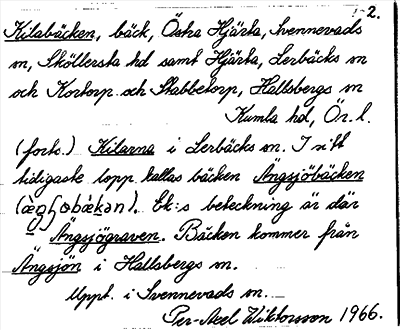 2.
Kilabäcken, bäck, Östra Hjärta, Svennevads
sn, Sköllersta hd samt Hjärta, Lerbäcks sn
och Kortorp och Skabbetorp, Hallsbergs sn
Kumla hd, Ör. l.
(forts.) Kilarna i Lerbäcks sn. I sitt
tidigaste lopp kallas bäcken Ängsjöbäcken
Ek:s beteckning är där
Ängsjögraven. Bäcken kommer från
Ängsjön i Hallsbergs sn.
Uppt. i Svennevads sn.
Per-Axel Wiktorsson 1966.